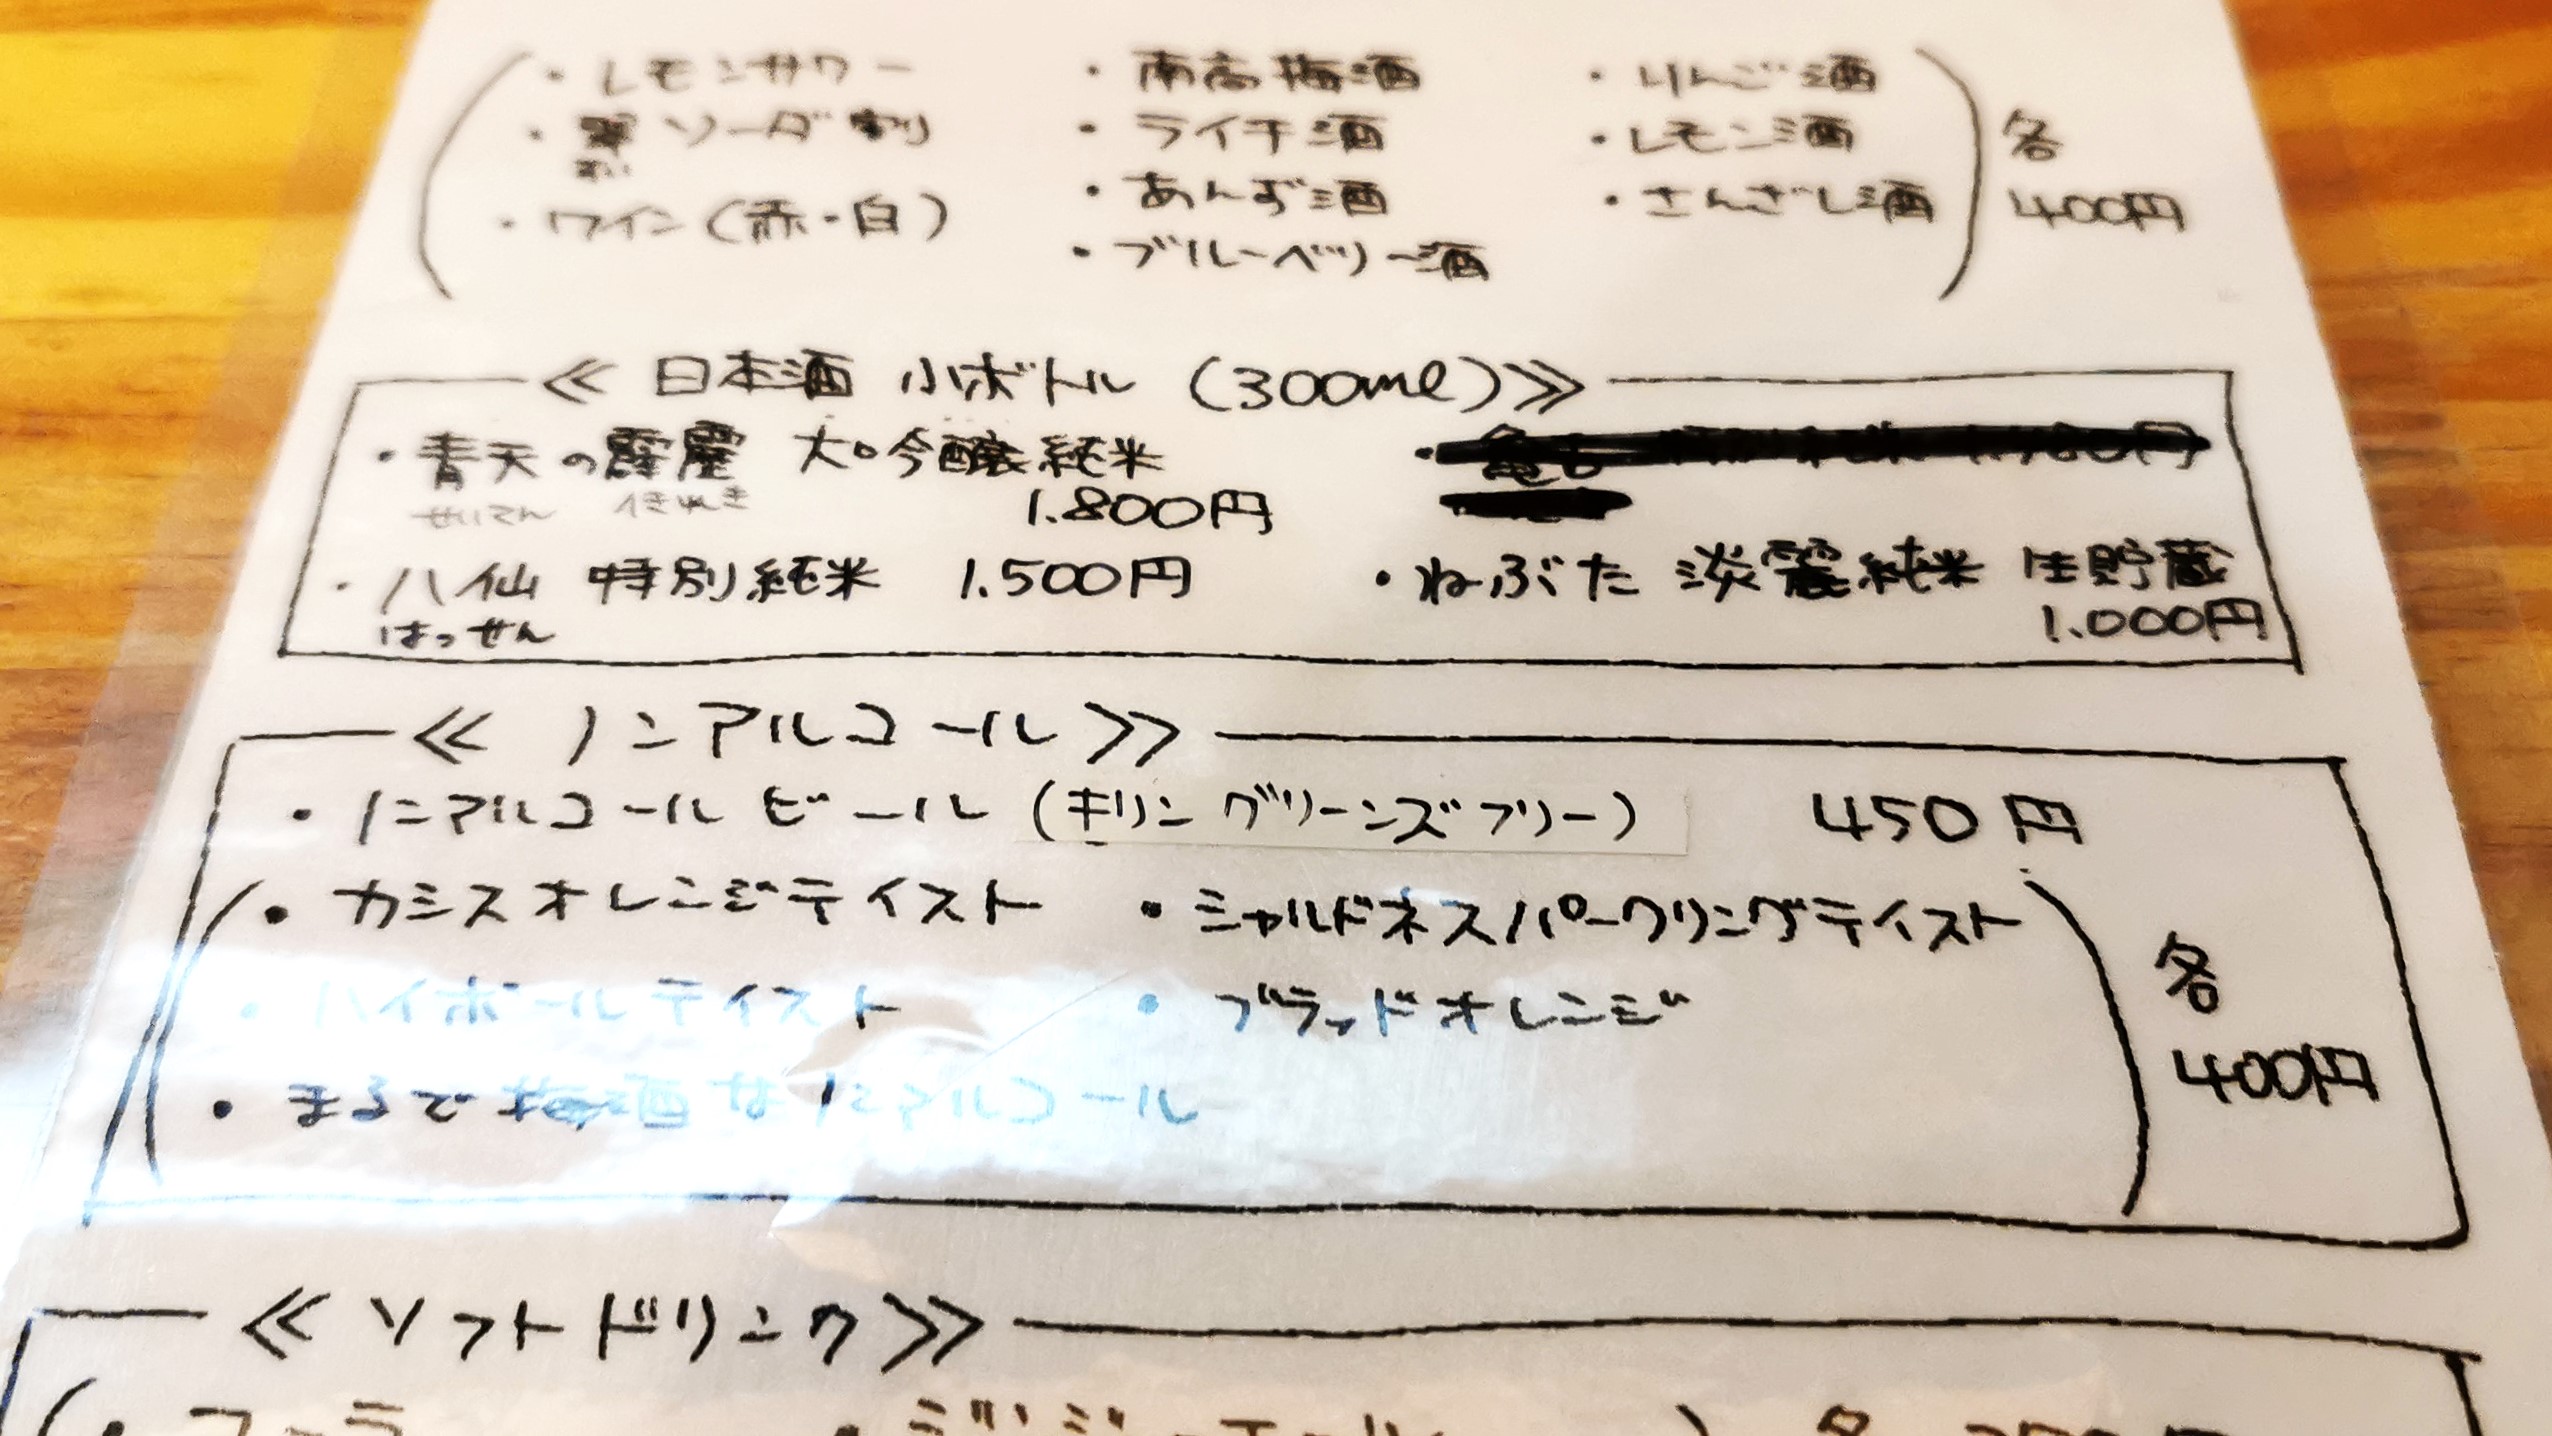 ・レモンサワー ・南高梅酒 ・りんご酒
・翠ソーダ割り ・ライチ酒 ・レモン酒 各
・ワイン(赤・白) ・あんず酒 ・さんざし酒 400円
・ブルーベリー酒
≪日本酒 小ボトル (300ml)≫
・青天の霹靂 大吟醸純米
せいてん へきれき 1.800円
・八仙 特別純米 1.500円 ・ねぶた 淡麗純米 生貯蔵
はっせん 1.000円
≪ノンアルコール≫
・ノンアルコールビール (キリン グリーンズフリー) 450円
・カシスオレンジテイスト ・シャルドネスパークリングテイスト
・ハイボールテイスト ・ブラッドオレンジ 各
・まるで梅酒なノンアルコール 400円
≪ソフトドリンク≫